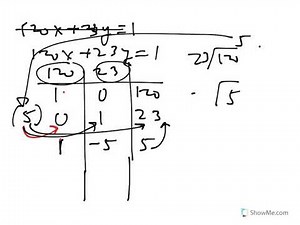 120x+23y=1
120x+23y=1
23√120 5
120 23
1 0 120
√5
(5) 0 1 23
1 -5 5
ShowMe.com